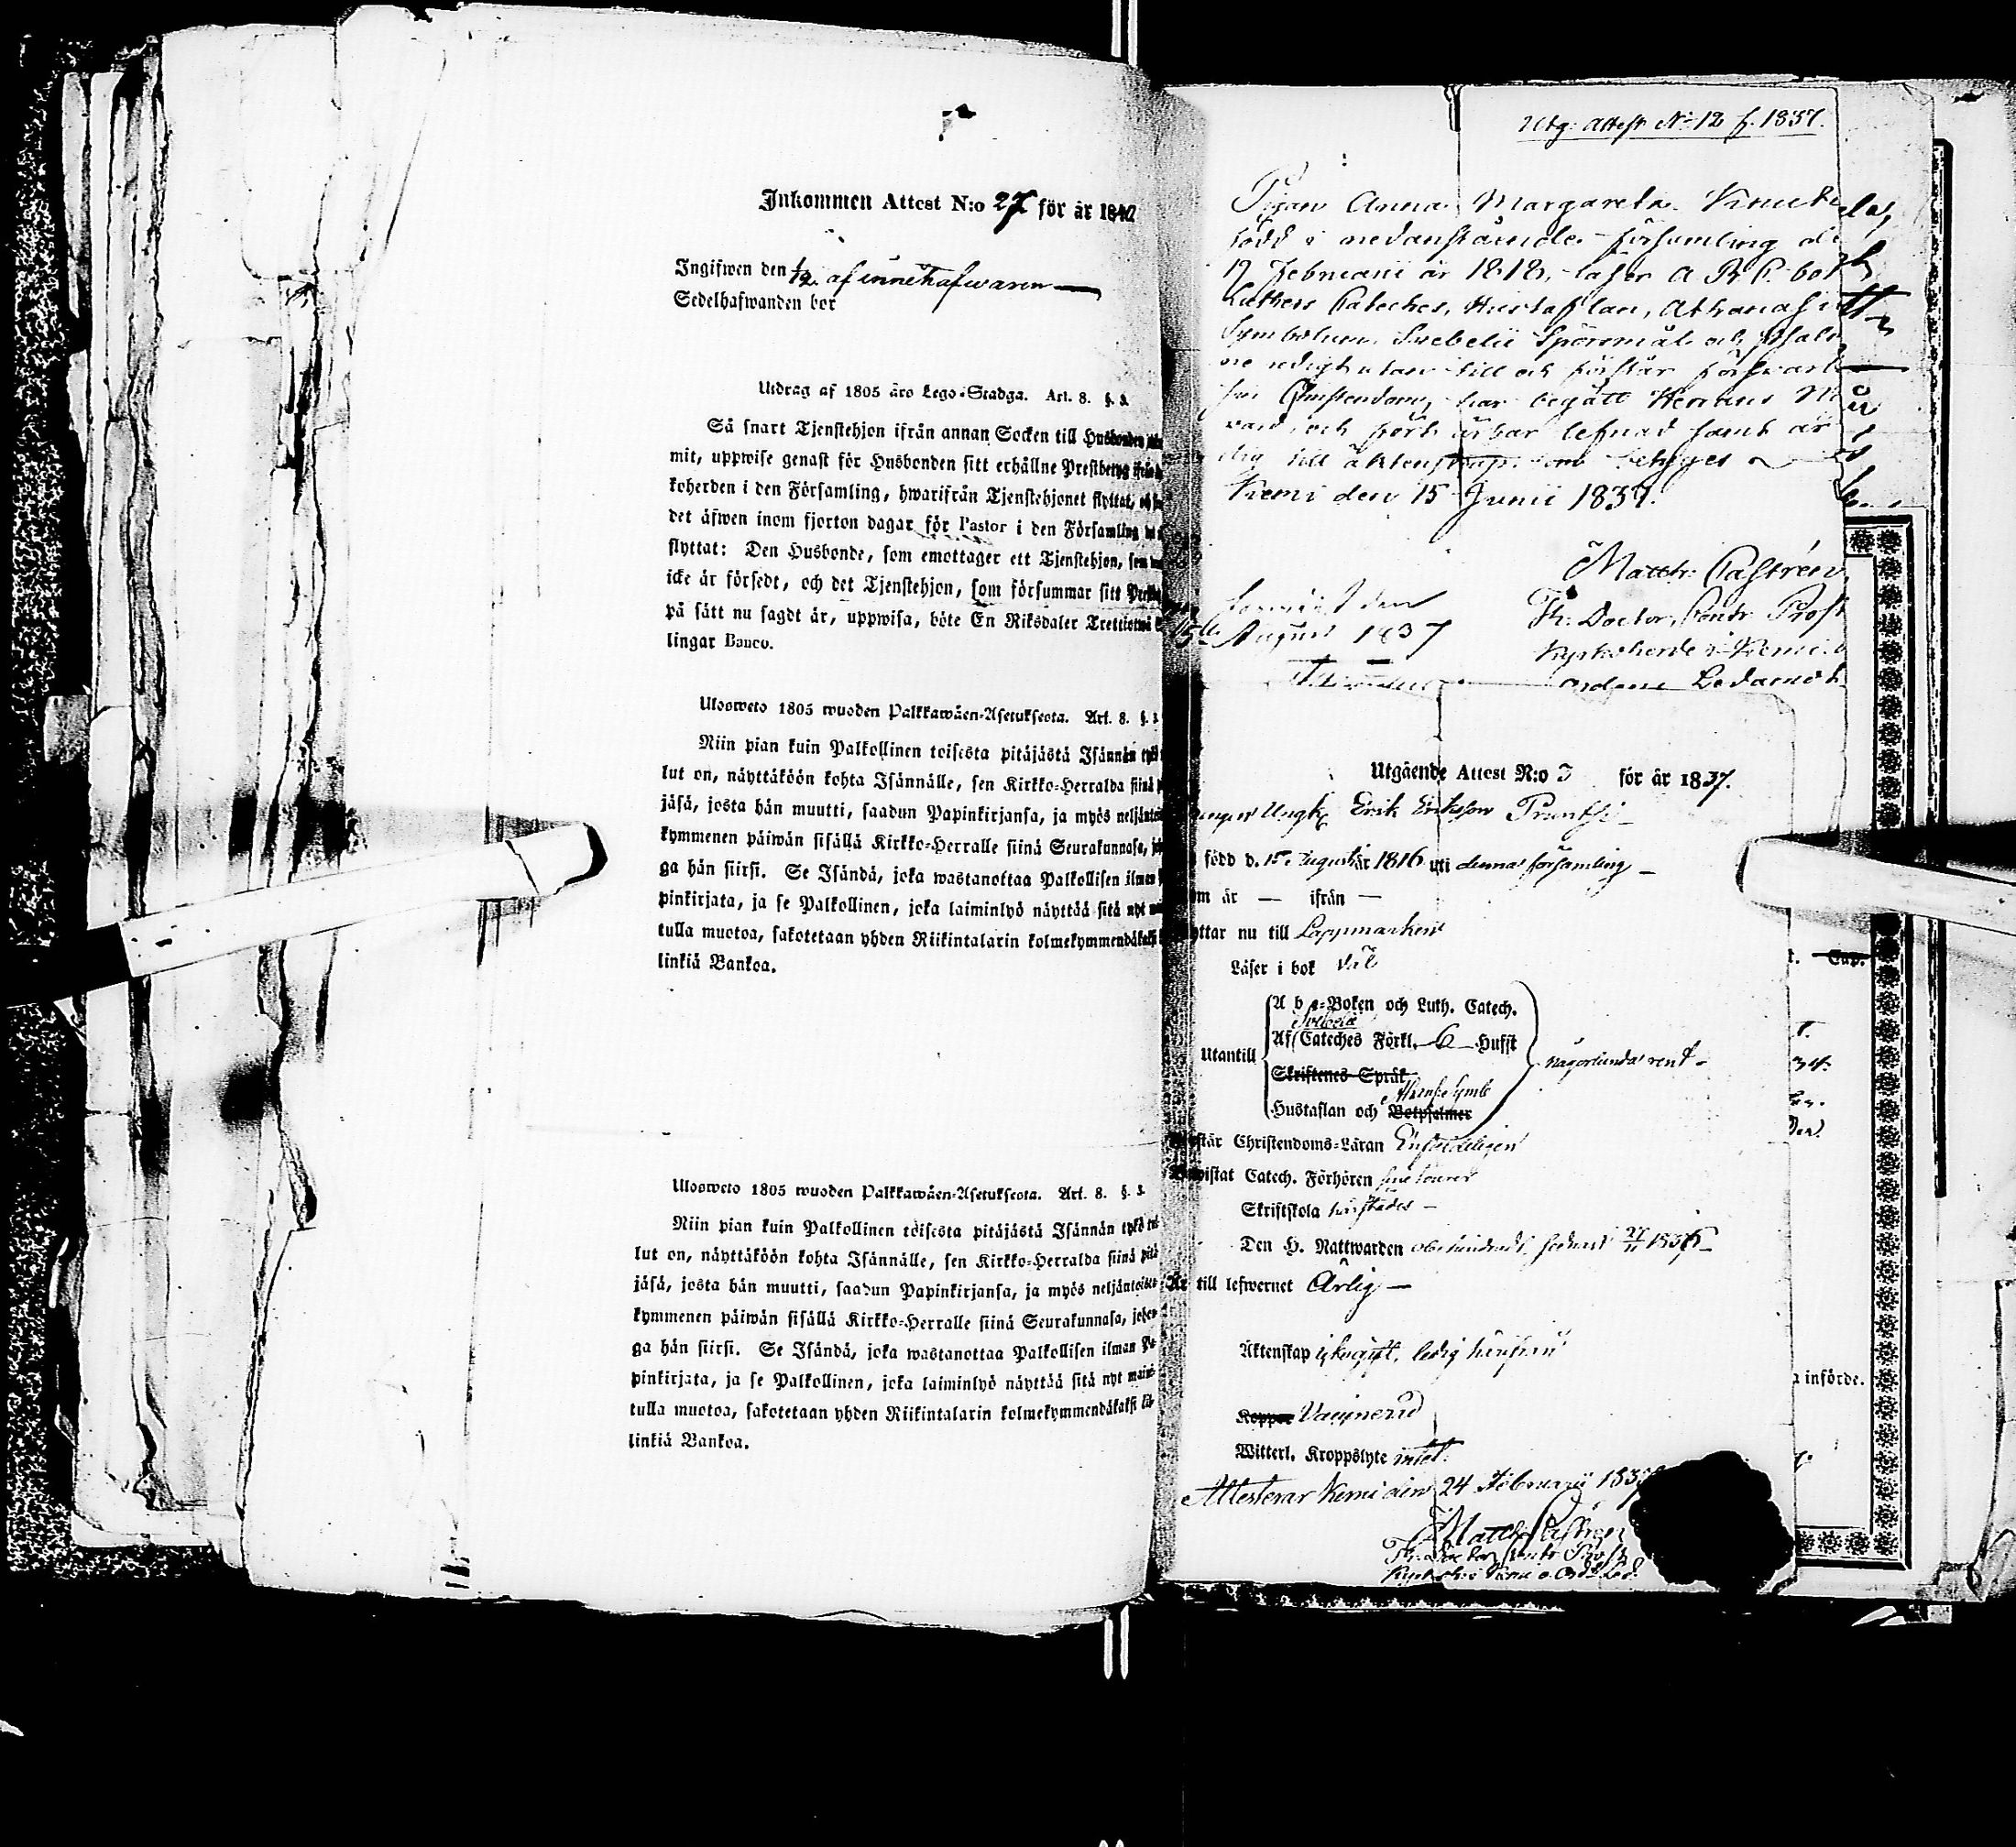 Inkommen Attest N:o 27 för år 1842
Ingifwen den 1/12 af innehafwaren —
Sedelhafwanden bor
Utdrag af 1805 års Lego-Stadga. Art. 8. §. 3.
Så snart Tjenstehjon ifrån annan Socken till Husbonden
mit, uppwise genast för Husbonden sitt erhållne Prestbetyg ifrån
koherden i den Församling, hwarifrån Tjenstehjonet flyttat, och
det äfwen inom fjorton dagar för Pastor i den Församling
flyttat: Den Husbonde, som emottager ett Tjenstehjon, som
icke är försedt, och det Tjenstehjon, som försummar sitt
på sätt nu sagdt är, uppwisa, böte En Riksdaler Trettiotwå
lingar Banco.
Ulosweto 1805 wuoden Palkkawäen-Asetuksesta. Art. 8. §. 3.
Niin pian kuin Palkollinen toisesta pitäjästä Isännän tykö
lut on, näyttäköön kohta Isännälle, sen Kirkko-Herralda siinä
jäsä, josta hän muutti, saadun Papinkirjansa, ja myös neljäntoista
kymmenen päiwän sisällä Kirkko-Herralle siinä Seurakunnasa,
ga hän siirsi. Se Isändä, joka wastanottaa Palkollisen ilman
pinkirjata, ja se Palkollinen, joka laiminlyö näyttää sitä nyt
tulla muotoa, sakotetaan yhden Riikintalarin kolmekymmendäkaksi
linkiä Bankoa.
Ulosweto 1805 wuoden Palkkawäen-Asetuksesta. Art. 8. §. 3.
Niin pian kuin Palkollinen toisesta pitäjästä Isännän tykö tul-
lut on, näyttäköön kohta Isännälle, sen Kirkko-Herralda siinä pitä-
jäsä, josta hän muutti, saadun Papinkirjansa, ja myös neljäntoista-
kymmenen päiwän sisällä Kirkko-Herralle siinä Seurakunnasa, johon-
ga hän siirsi. Se Isändä, joka wastanottaa Palkollisen ilman Pa-
pinkirjata, ja se Palkollinen, joka laiminlyö näyttää sitä nyt maini-
tulla muotoa, sakotetaan yhden Riikintalarin kolmekymmendäkaksi kil-
linkiä Bankoa.
Utg: Attest No 12 f. 1837.
Pigan Anna Margareta
född i nedanstående församling de
17 Februarii år 1818, läser A B C bok
Luthers Cateches, Hustaflan, Athanasii
Symbolum, Svebelii Spörsmål och Psalm
ne redigt utan till och förstår försvarl
sin Christendom, har begått Herrans
vard, och fört ärbar lefnad samt är
dig till äktenskap; som betyges
Kemi den 15 Junii 1837.
Matth: Castrén
Th: Doctor, Contr Prost
Kyrkoherde i Kemi
Ordens Ledamot
den
15de August 1837
Utgående Attest N:o 3 för år 1837.
Ungk Erik Eriksson
född d. 15 Augusti år 1816 uti denna församling —
om är — ifrån —
yttar nu till Lappmarken
Läser i bok väl
A b c-Boken och Luth. Catech.
Svebelii
Af Cateches Förkl. 6 Hufst
Utantill
någorlunda rent -
Skriftenes Språk
Hustaflan och Botpsalmer
står Christendoms-Läran Enfaldeligen
Bewistat Catech. Förhören
Skriftskola härstädes —
Den H. Nattwarden
Är till lefwernet Ärlig —
Äktenskap
Koppor Vaccinerad
Witterl. Kroppslyte intet.
Attesterar Kemi den 24 Februarii 183
Matth Castrén
Th: Doctor, Contr Prost
Kyrkoh: i Kemi o. Ord. Led.
a införde.